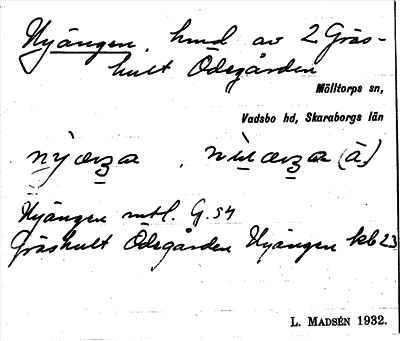 Nyängen, hmd av 2 Gräs-
hult Ödegården
Mölltorps sn,
Vadsbo hd, Skaraborgs län
Nyängen mtl. G. 54
Gräshult Ödegården Nyängen kb 23
L. MADSÉN 1932.